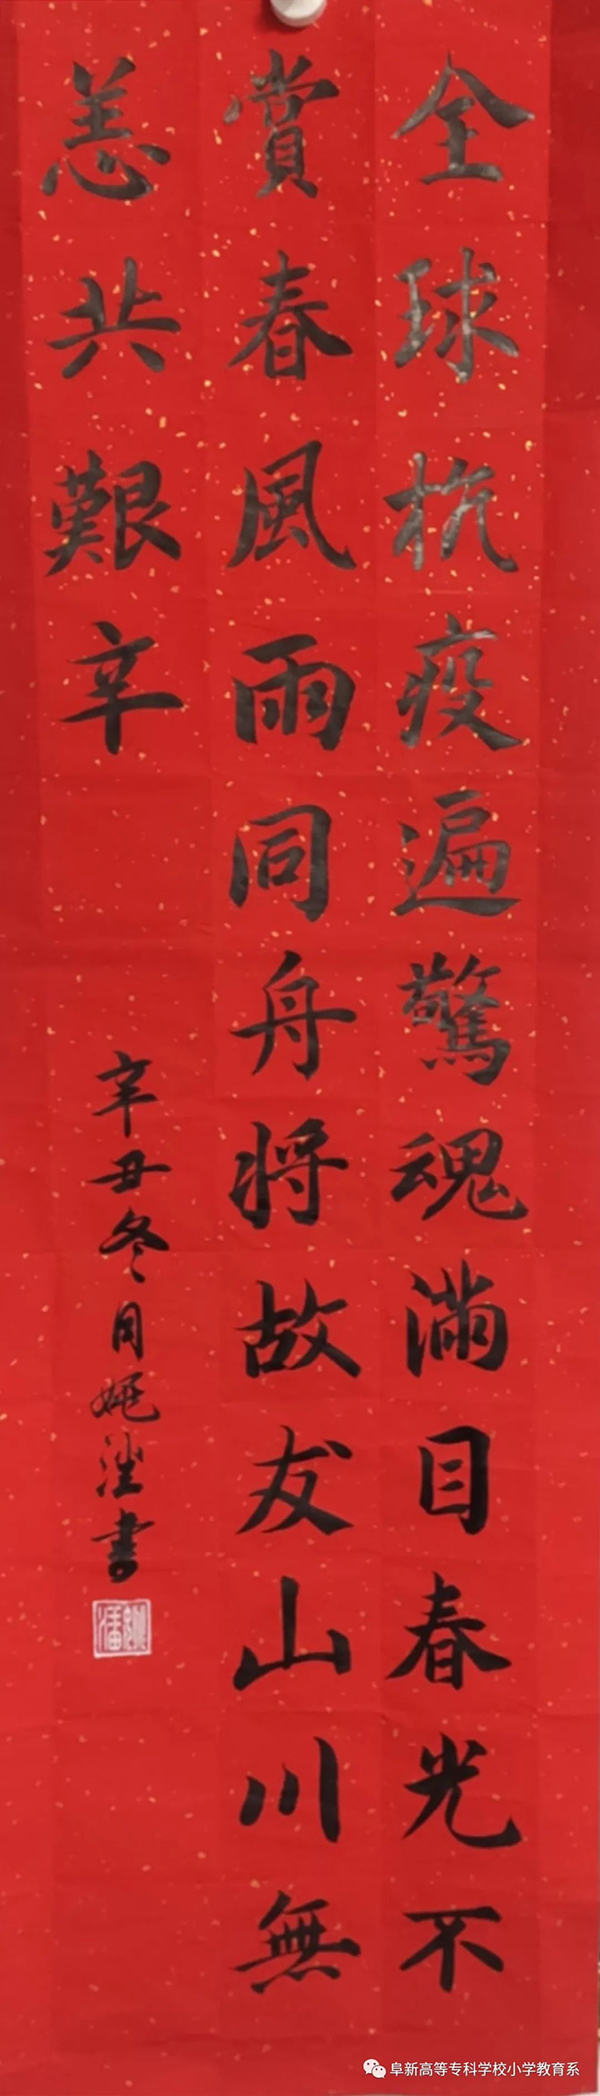 全球抗疫遍驚魂滿目春光不
賞春風雨同舟將故友山川無
恙共艱辛
辛丑冬月姚瀅書
阜新高等专科学校小学教育系